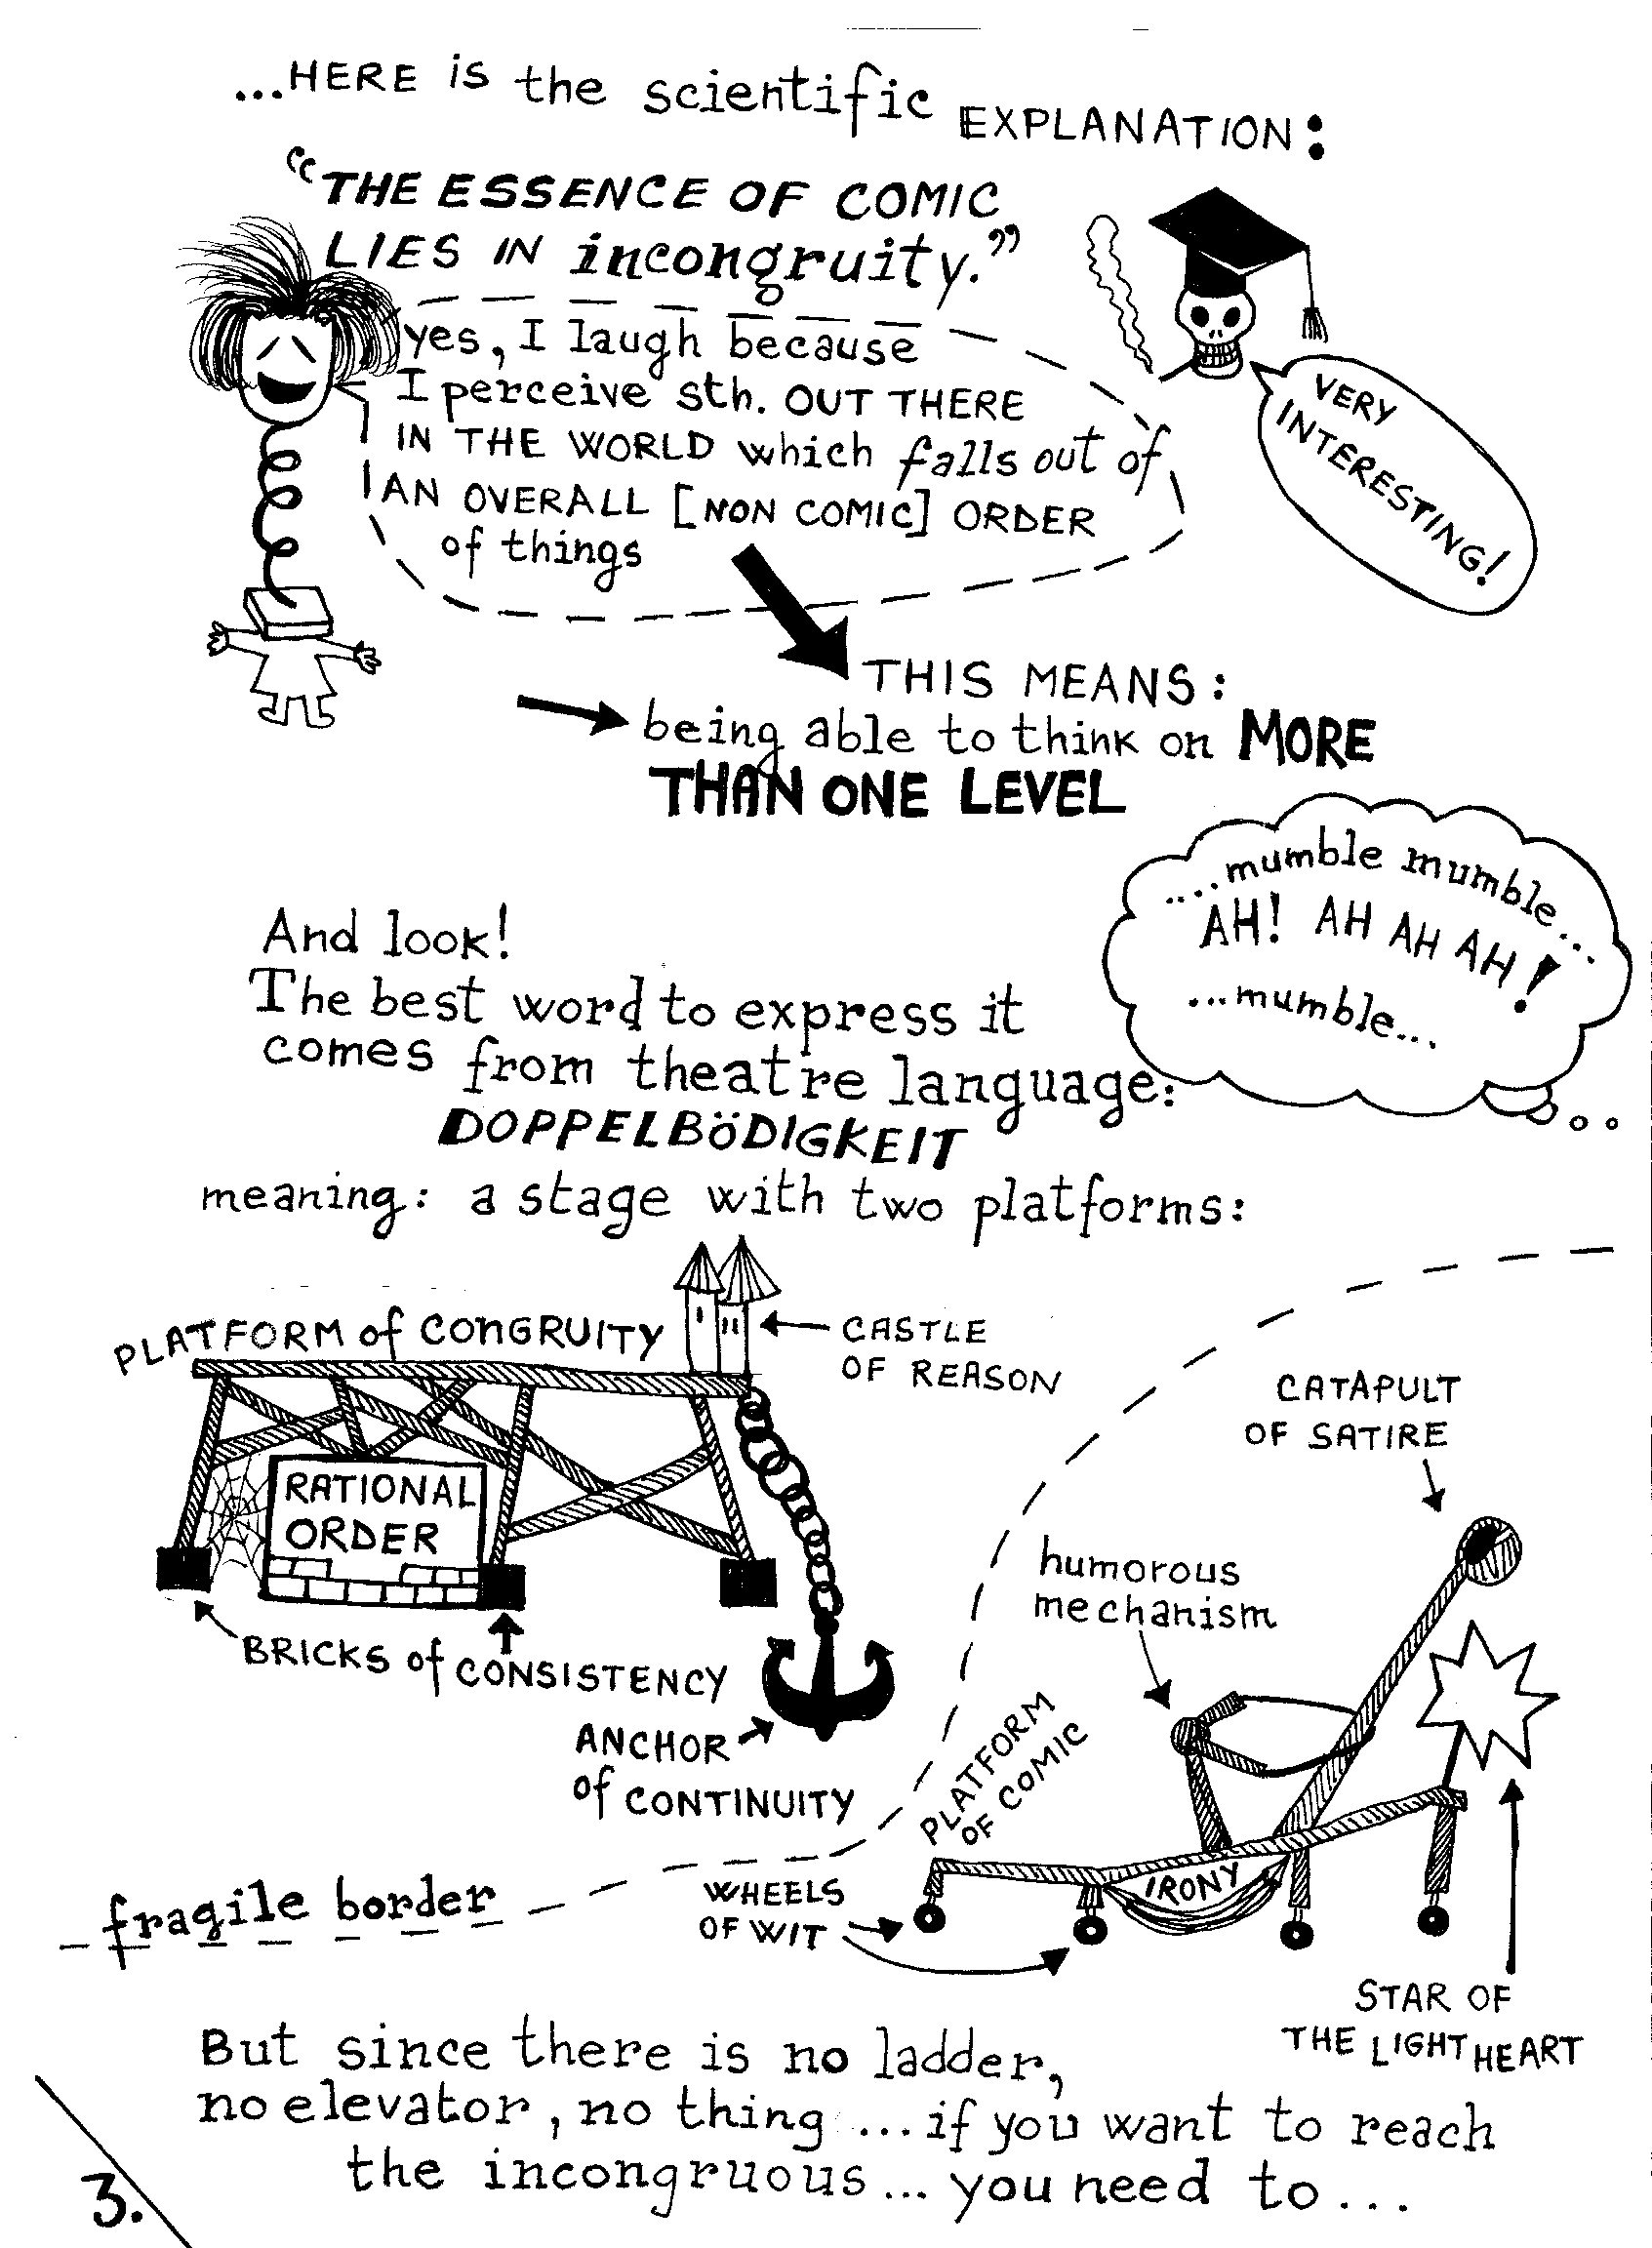 ...HERE is the scientific EXPLANATION:
"THE ESSENCE OF COMIC
LIES IN incongruity."
yes, I laugh because
I perceive sth. OUT THERE
IN THE WORLD which falls out of
AN OVERALL [NON COMIC] ORDER
of things
VERY
INTERESTING!
THIS MEANS:
being able to think on MORE
THAN ONE LEVEL
....mumble mumble...
AH! AH AH AH!
...mumble...
And look!
The best word to express it
comes from theatre language:
DOPPELBÖDIGKEIT
meaning: a stage with two platforms:
PLATFORM of CONGRUITY
CASTLE
OF REASON
RATIONAL
ORDER
BRICKS of CONSISTENCY
ANCHOR
of CONTINUITY
CATAPULT
OF SATIRE
humorous
mechanism
PLATFORM
OF COMIC
IRONY
WHEELS
OF WIT
fragile border
STAR OF
THE LIGHT HEART
But since there is no ladder,
no elevator, no thing ... if you want to reach
the incongruous ... you need to ...
3.